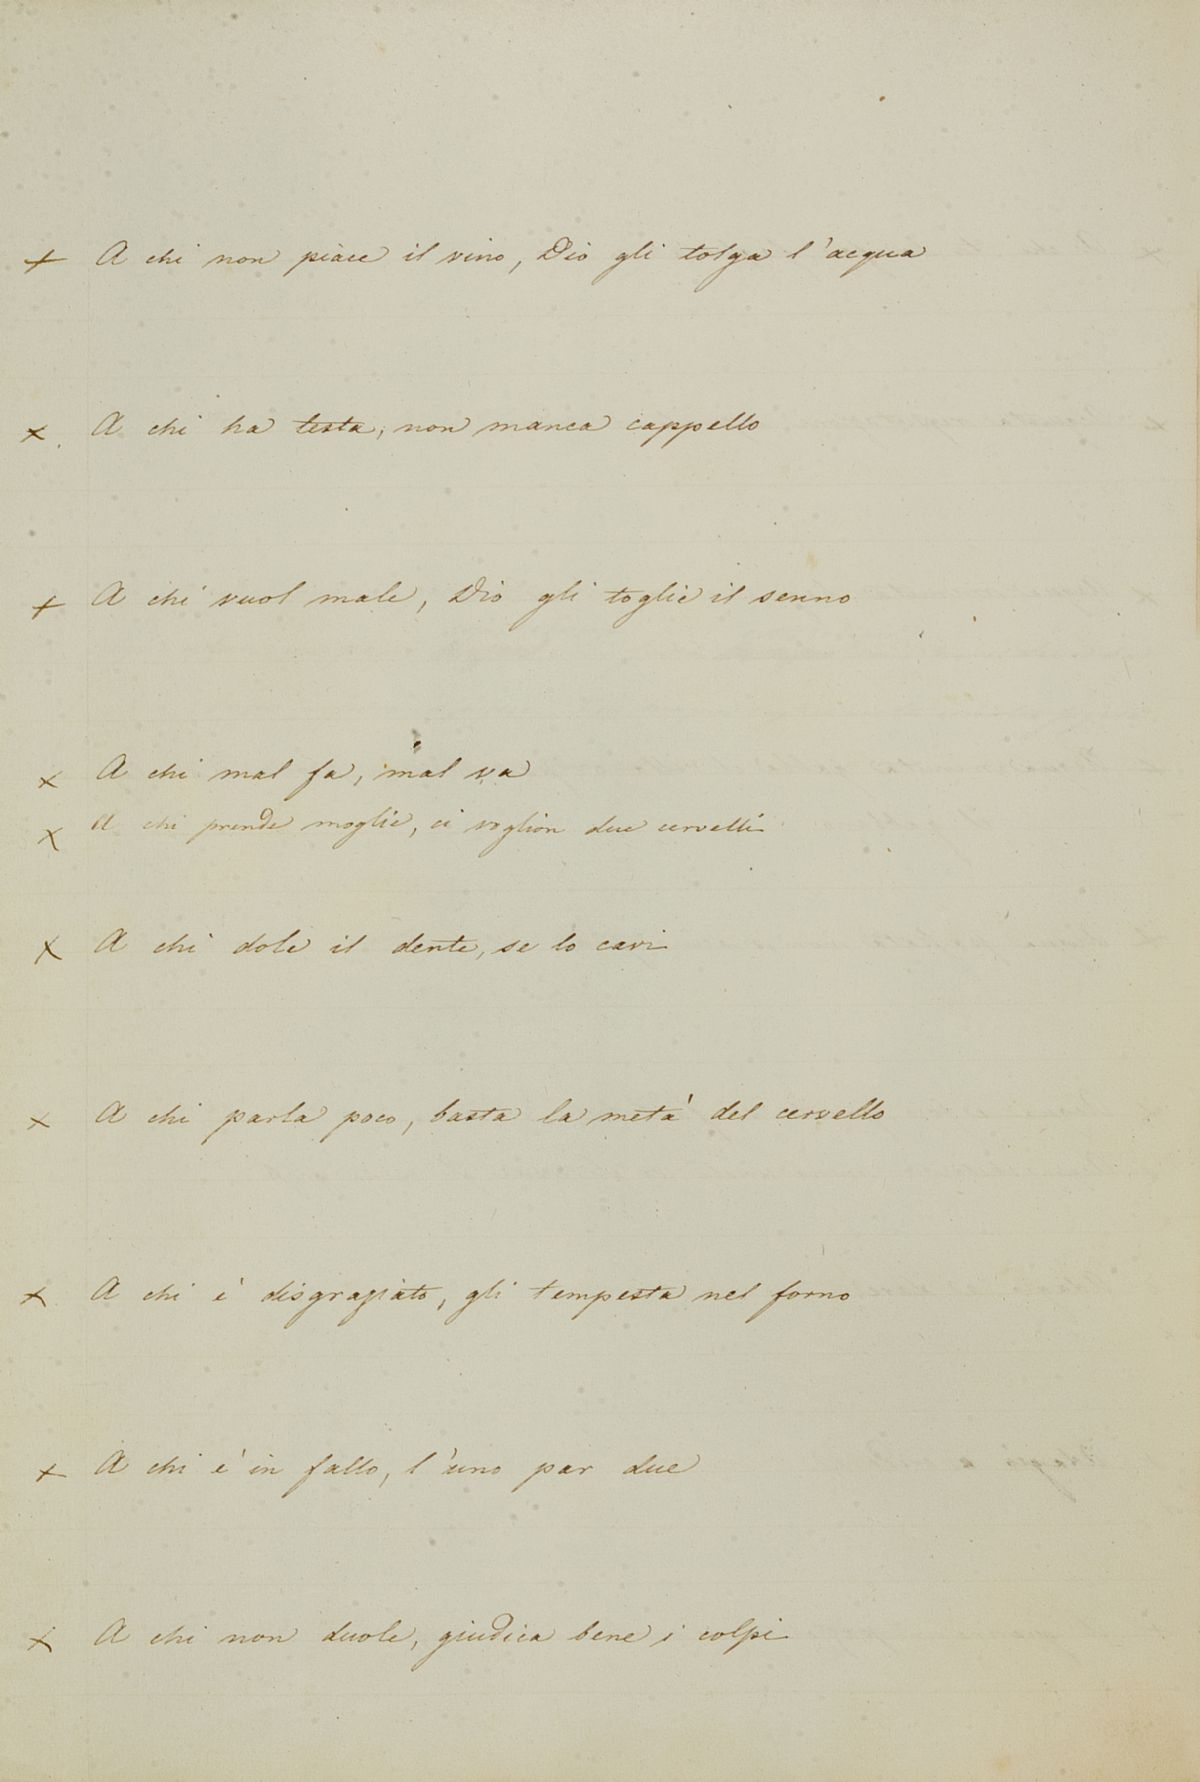 × A chi non piace il vino, Dio gli tolga l'acqua
× A chi ha testa, non manca cappello
× A chi vuol male, Dio gli toglie il senno
× A chi mal fa, mal va
× A chi prende moglie, ci voglion due cervelli
× A chi dole il dente, se lo cavi
× A chi parla poco, basta la metà del cervello
× A chi è disgraziato, gli tempesta nel forno
× A chi è in fallo, l'uno par due
× A chi non duole, giudica bene i colpi